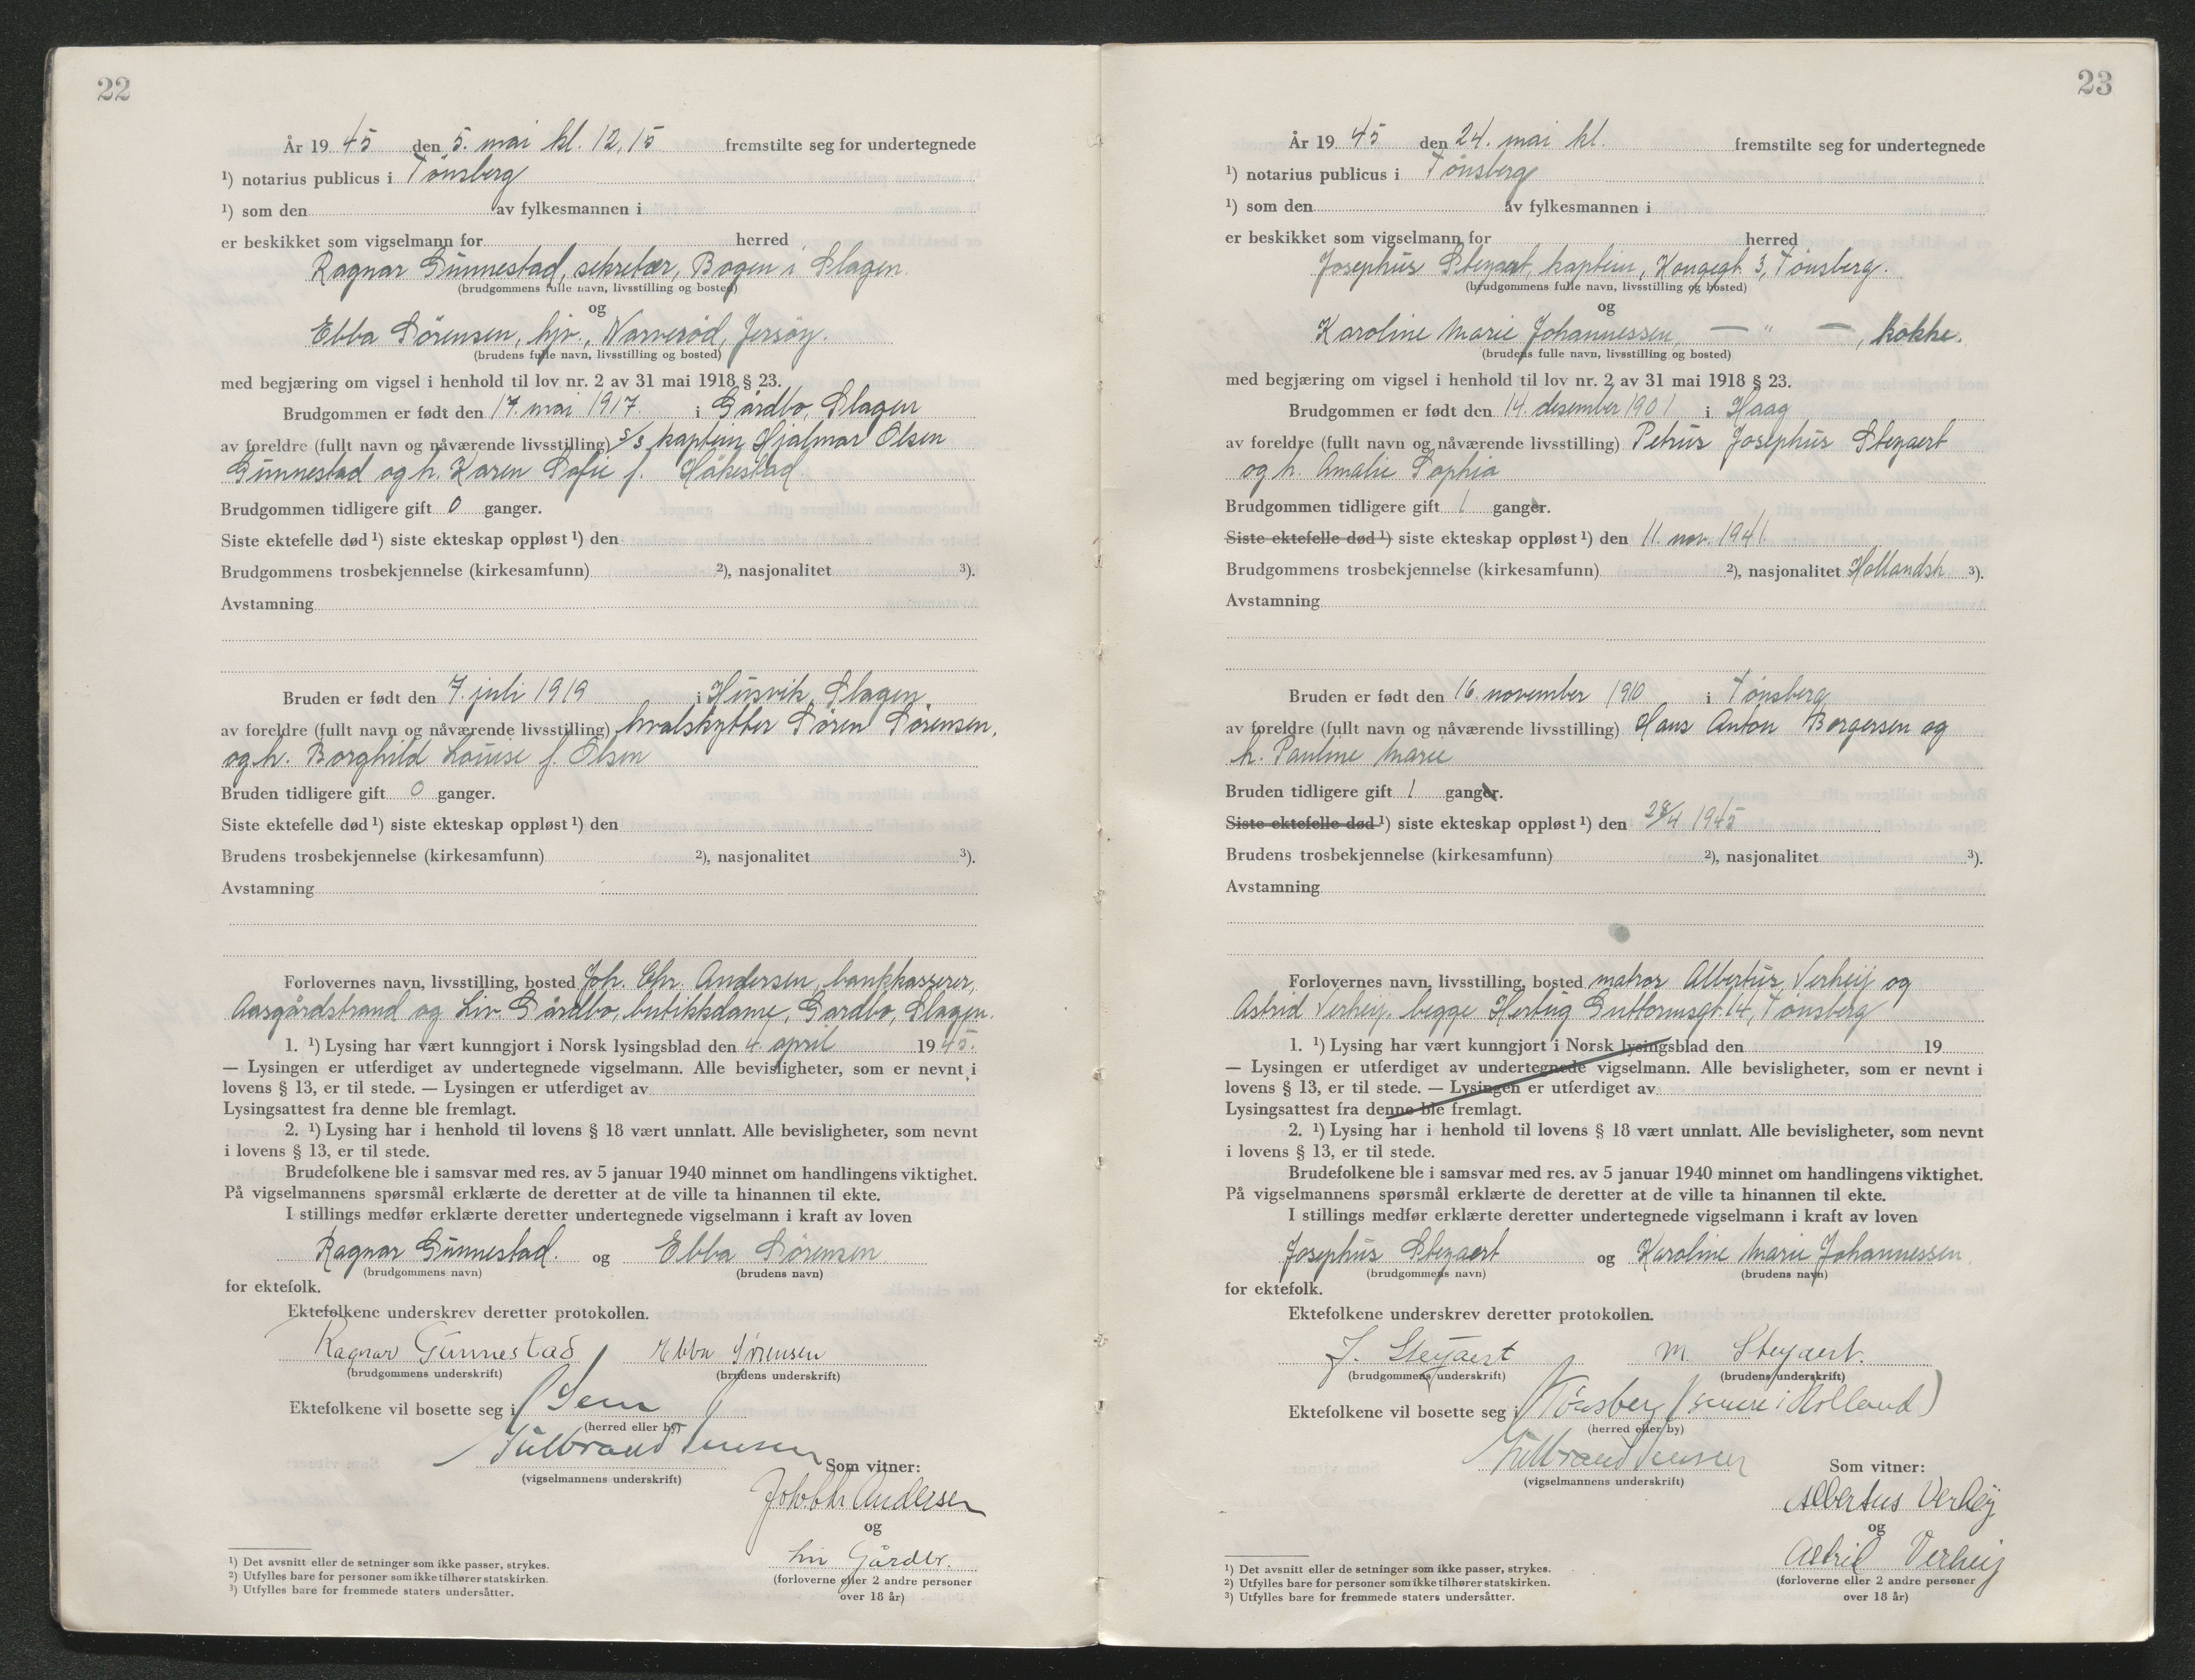 22
År 19 45 den 5. mai kl. 12,15 fremstilte seg for undertegnede
¹) notarius publicus i Tønsberg
¹) som den av fylkesmannen i
er beskikket som vigselmann for herred
Ragnar Gunnestad, sekretær, Bogen i Slagen.
(brudgommens fulle navn, livsstilling og bosted)
og
Ebba Sørensen, hjv., Narverød, Jersøy.
(brudens fulle navn, livsstilling og bosted)
med begjæring om vigsel i henhold til lov nr. 2 av 31 mai 1918 § 23.
Brudgommen er født den 17. mai 1917. i Gårdbo, Slagen
av foreldre (fullt navn og nåværende livsstilling) s/s kaptein Hjalmar Olsen
Gunnestad og h. Karen Sofie f. Håkestad.
Brudgommen tidligere gift 0 ganger.
Siste ektefelle død ¹) siste ekteskap oppløst ¹) den
Brudgommens trosbekjennelse (kirkesamfunn) ²), nasjonalitet ³).
Avstamning
Bruden er født den 7. juli 1919 i Husvik, Slagen
av foreldre (fullt navn og nåværende livsstilling) hvalskytter Søren Sørensen,
og h. Borghild Louise f. Olsen
Bruden tidligere gift 0 ganger.
Siste ektefelle død ¹) siste ekteskap oppløst ¹) den
Brudens trosbekjennelse (kirkesamfunn) ²), nasjonalitet ³).
Avstamning
Forlovernes navn, livsstilling, bosted Joh. Chr. Andersen, bankkasserer,
Aasgårdstrand og Liv Gårdbo, butikkdame, Gårdbo, Slagen.
1. ¹) Lysing har vært kunngjort i Norsk lysingsblad den 4. april 1945.
— Lysingen er utferdiget av undertegnede vigselmann. Alle bevisligheter, som er nevnt i
lovens § 13, er til stede. — Lysingen er utferdiget av
Lysingsattest fra denne ble fremlagt.
2. ¹) Lysing har i henhold til lovens § 18 vært unnlatt. Alle bevisligheter, som nevnt
i lovens § 13, er til stede.
Brudefolkene ble i samsvar med res. av 5 januar 1940 minnet om handlingens viktighet.
På vigselmannens spørsmål erklærte de deretter at de ville ta hinannen til ekte.
I stillings medfør erklærte deretter undertegnede vigselmann i kraft av loven
Ragnar Gunnestad. og Ebba Sørensen.
(brudgommens navn) (brudens navn)
for ektefolk.
Ektefolkene underskrev deretter protokollen.
Ragnar Gunnestad Ebba Sørensen
(brudgommens underskrift) (brudens underskrift)
Ektefolkene vil bosette seg i Sem
(herred eller by)
(vigselmannens underskrift)
Som vitner:
Joh Chr Andersen
og
Liv Gårdbo.
(forloverne eller 2 andre personer
over 18 år)
¹) Det avsnitt eller de setninger som ikke passer, strykes.
²) Utfylles bare for personer som ikke tilhører statskirken.
³) Utfylles bare for fremmede staters undersåtter.
23
År 19 45 den 24. mai kl. fremstilte seg for undertegnede
¹) notarius publicus i Tønsberg
¹) som den av fylkesmannen i
er beskikket som vigselmann for herred
Josephus Steyaert, kaptein, Kongegt. 3, Tønsberg.
(brudgommens fulle navn, livsstilling og bosted)
og
Karoline Marie Johannessen, — " — , kokke.
(brudens fulle navn, livsstilling og bosted)
med begjæring om vigsel i henhold til lov nr. 2 av 31 mai 1918 § 23.
Brudgommen er født den 14. desember 1901 i Haag
av foreldre (fullt navn og nåværende livsstilling) Petrus Josephus Steyaert
og h. Amalie Sophia
Brudgommen tidligere gift 1 ganger.
Siste ektefelle død ¹) siste ekteskap oppløst ¹) den 11. nov. 1941.
Brudgommens trosbekjennelse (kirkesamfunn) ²), nasjonalitet Hollandsk ³).
Avstamning
Bruden er født den 16. november 1910 i Tønsberg
av foreldre (fullt navn og nåværende livsstilling) Hans Anton Borgersen og
h. Pauline Marie
Bruden tidligere gift 1 ganger.
Siste ektefelle død ¹) siste ekteskap oppløst ¹) den 28/4 1945
Brudens trosbekjennelse (kirkesamfunn) ²), nasjonalitet ³).
Avstamning
Forlovernes navn, livsstilling, bosted matros Albertus Verheij og
Astrid Verheij, begge Hertug Guttormsgt. 14, Tønsberg
1. ¹) Lysing har vært kunngjort i Norsk lysingsblad den 19
— Lysingen er utferdiget av undertegnede vigselmann. Alle bevisligheter, som er nevnt i
lovens § 13, er til stede. — Lysingen er utferdiget av
Lysingsattest fra denne ble fremlagt.
2. ¹) Lysing har i henhold til lovens § 18 vært unnlatt. Alle bevisligheter, som nevnt
i lovens § 13, er til stede.
Brudefolkene ble i samsvar med res. av 5 januar 1940 minnet om handlingens viktighet.
På vigselmannens spørsmål erklærte de deretter at de ville ta hinannen til ekte.
I stillings medfør erklærte deretter undertegnede vigselmann i kraft av loven
Josephus Steyaert og Karoline Marie Johannessen.
(brudgommens navn) (brudens navn)
for ektefolk.
Ektefolkene underskrev deretter protokollen.
J. Steyaert M. Steyaert.
(brudgommens underskrift) (brudens underskrift)
Ektefolkene vil bosette seg i Tønsberg (senere i Holland)
(herred eller by)
(vigselmannens underskrift)
Som vitner:
Albertus Verheij
og
Astrid Verheij
(forloverne eller 2 andre personer
over 18 år)
¹) Det avsnitt eller de setninger som ikke passer, strykes.
²) Utfylles bare for personer som ikke tilhører statskirken.
³) Utfylles bare for fremmede staters undersåtter.